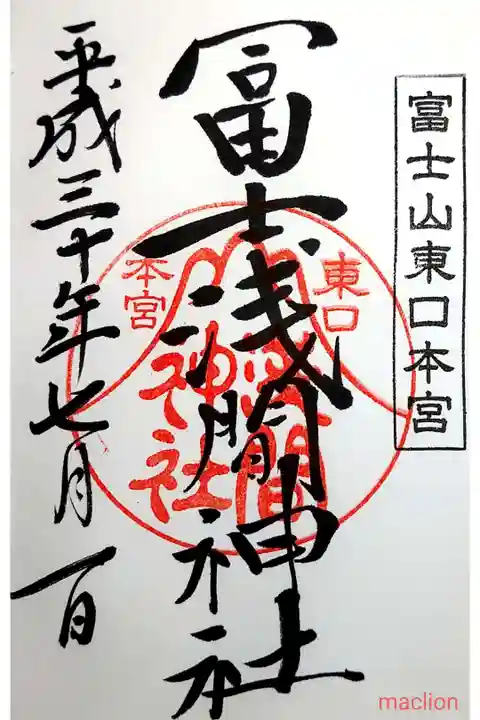 富士山東口本宮
冨士浅間神社
東口
本宮
浅間
神社
平成三十年七月一日
maclion